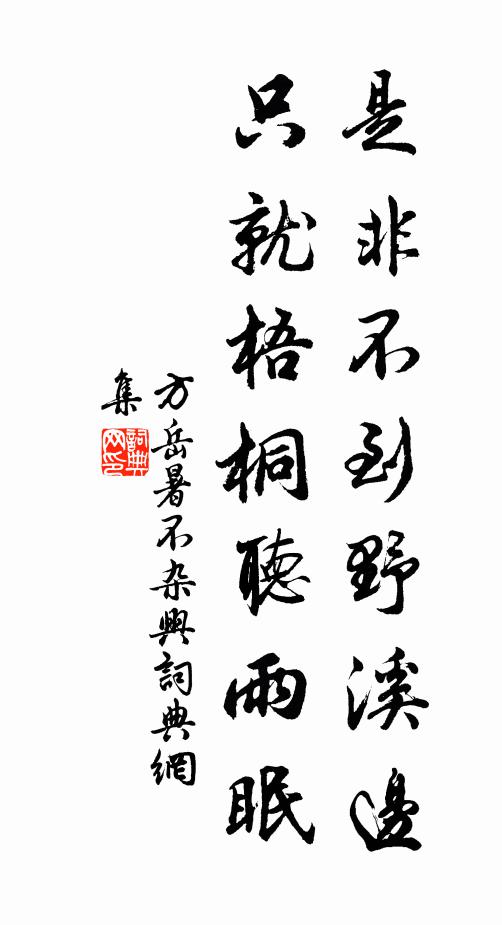 是非不到野溪邊
只就梧桐聽雨眠
方岳暑不杂興詞典網
集
詞典
网印